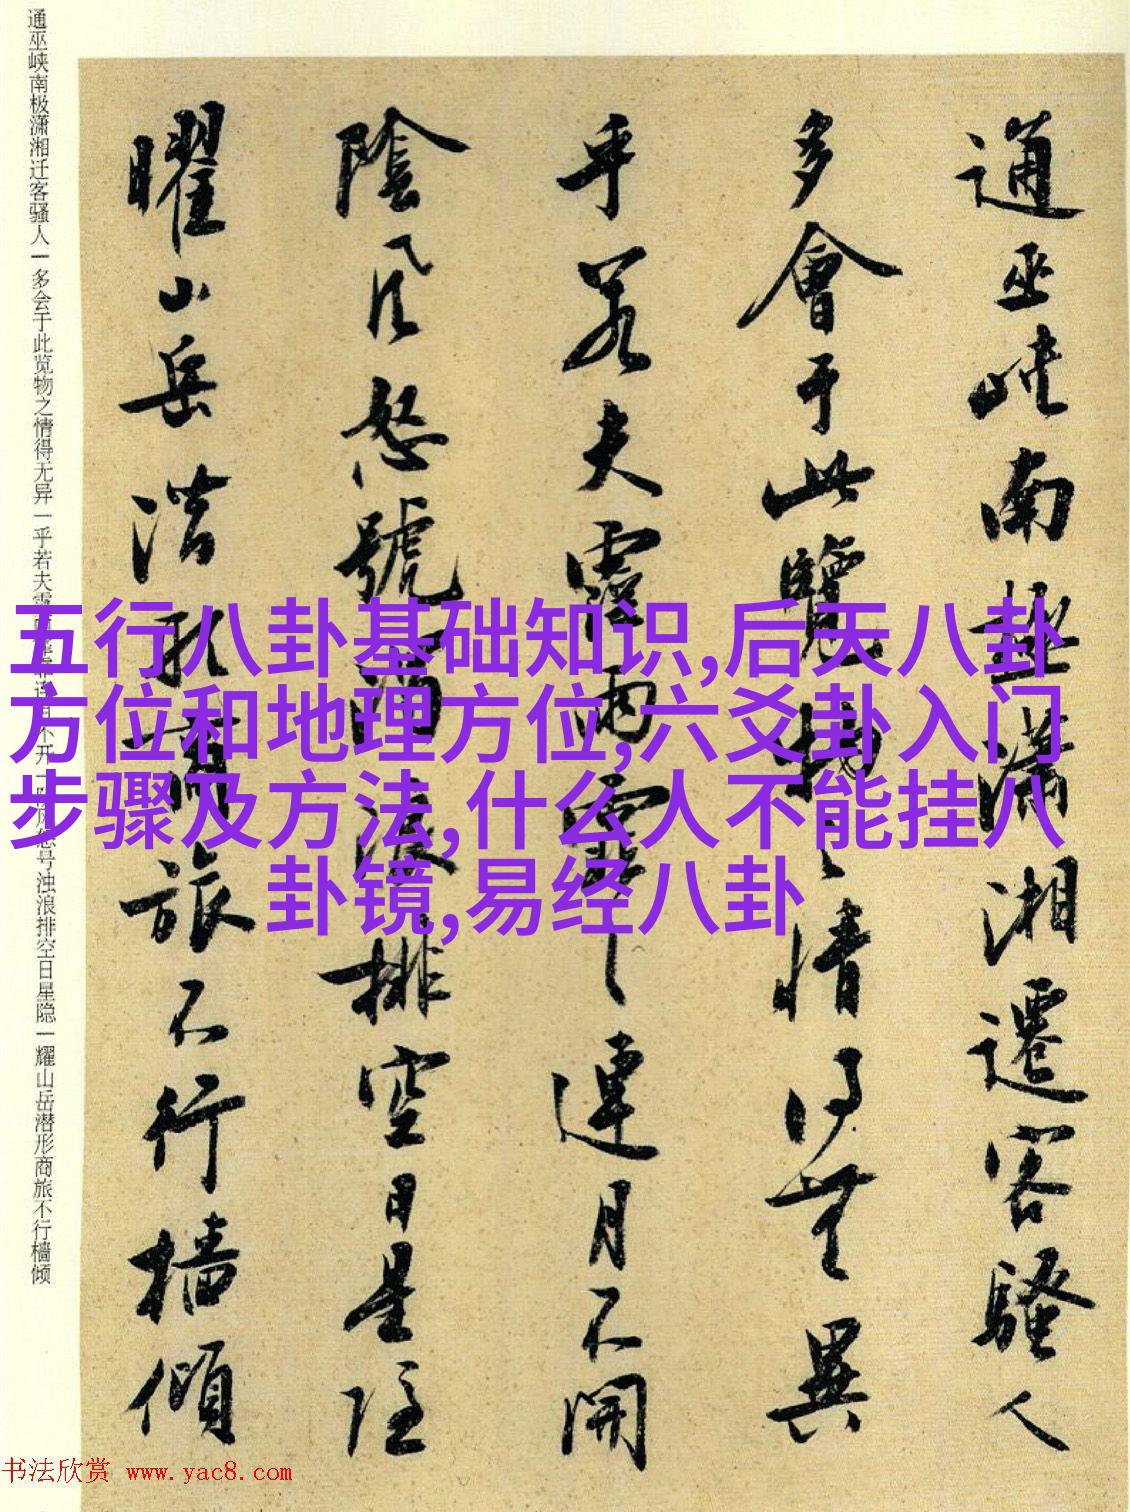 通巫峡南极潇湘迁客骚人一多会于此览物之情得无异一乎若夫霪雨霏霏连月不开一阴风怒号浊浪排空日星隐一耀山岳潜形商旅不行樯倾
通巫峡南極潇湘遷客騷人
多會于此覽物之情得無異
乎若夫霪雨霏〻連月不開
陰風怒號濁浪排空日星隱
曜山岳潜形商旅不行檣傾
五行八卦基础知识,后天八卦
方位和地理方位,六爻卦入门
步骤及方法,什么人不能挂八
卦镜,易经八卦
书法欣赏 www.yac8.com